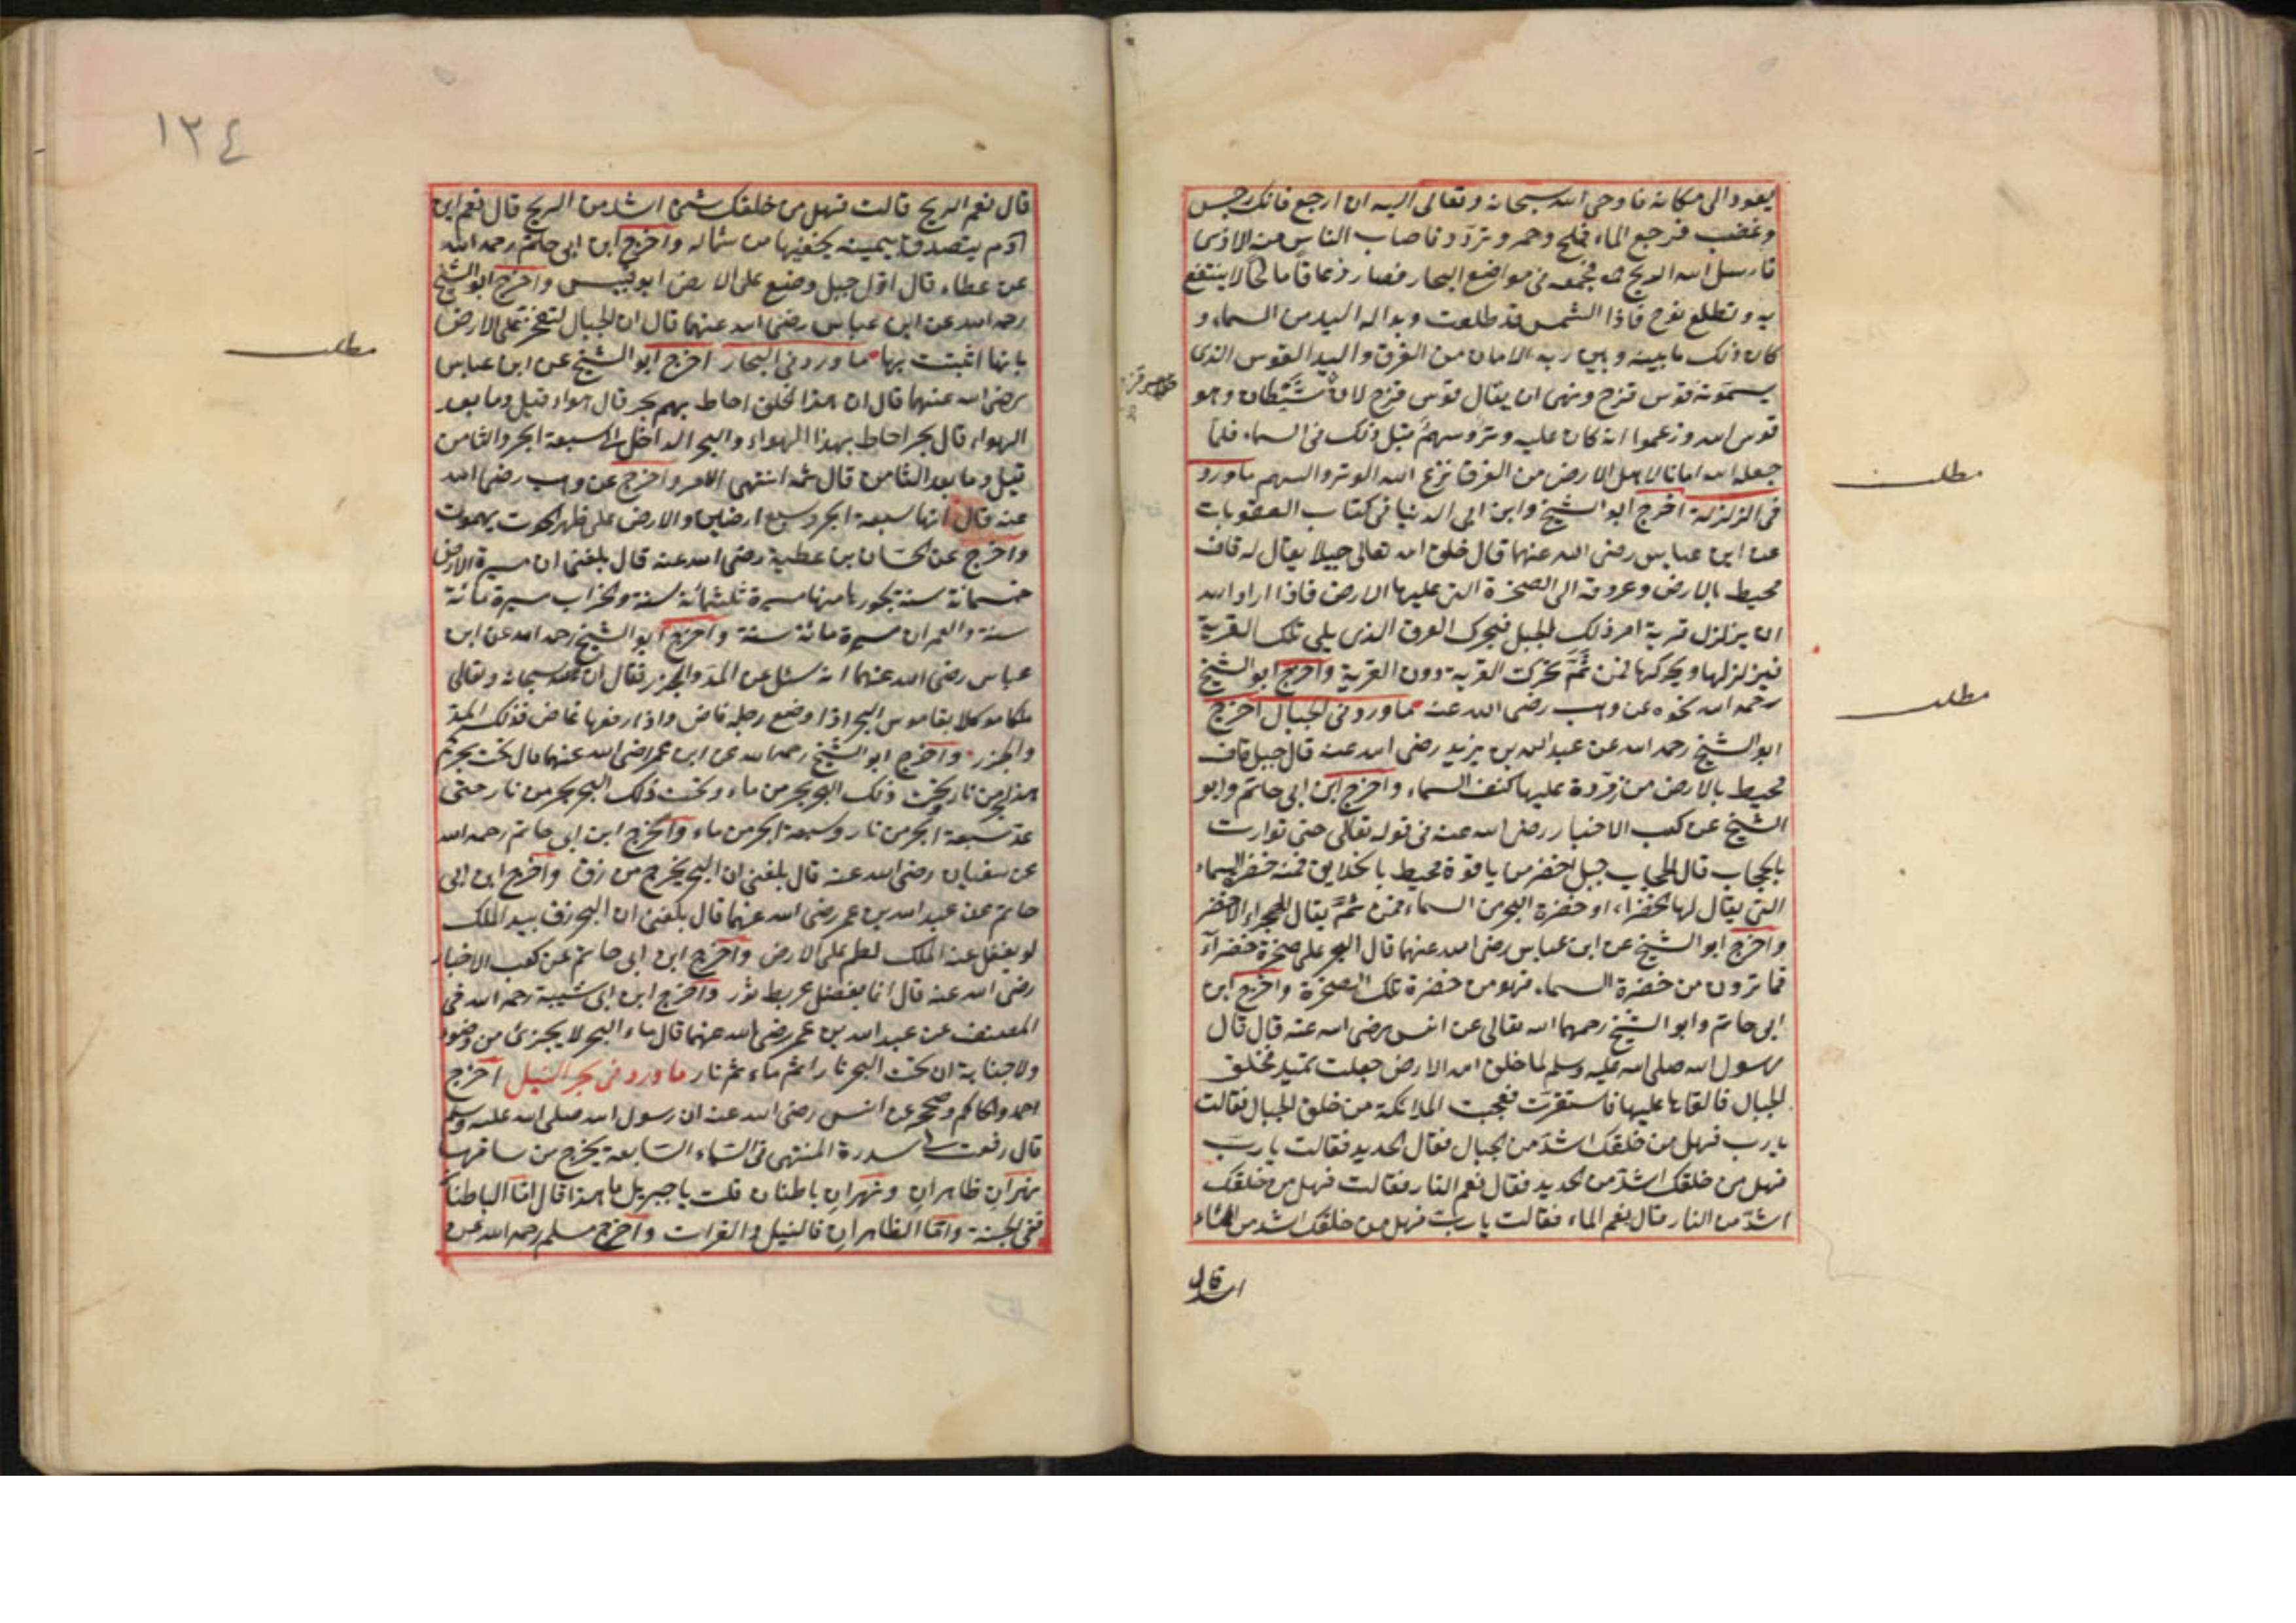 يعود الى مكانه فاوحى الله سبحانه وتعالى اليه ان ارجع فانك رجس
وغضب فرجع الماء فملح وحمر وتردد فاصاب الناس منه الاذى
فارسل الله الريح فجمعه فى مواضع البحار فصار زعاقا مالحا لا ينتفع
به وتطلع نوح فاذا الشمس قد طلعت وبدا له اليد من السماء و
كان ذلك ما بينه وبين ربه الامان من الغرق واليد القوس الذى
يسمونه قوس قزح ونهى ان يقال قوس قزح لان شيطان وهو
قوس الله وزعموا انه كان عليه وتر وسهم قبل ذلك فى السماء فلما
جعله الله امانا لاهل الارض من الغرق نزع الله الوتر والسهم ما ورد
فى الزلزلة اخرج ابو الشيخ وابن ابى الدنيا فى كتاب العقوبات
عن ابن عباس رضى الله عنهما قال خلق الله تعالى جبلا يقال له قاف
محيط بالارض وعروقه الى الصخرة التى عليها الارض فاذا اراد الله
ان يزلزل قرية امر ذلك الجبل فيحرك العرق الذى يلى تلك القرية
فيزلزلها ويحركها فمن ثم تحركت القرية دون القرية واخرج ابو الشيخ
رحمه الله نحوه عن وهب رضى الله عنه ما ورد فى الجبال اخرج
ابو الشيخ رحمه الله عن عبد الله بن بزيد رضى الله عنه قال جبل قاف
محيط بالارض من زمردة عليها كنف السماء واخرج ابن ابى حاتم وابو
الشيخ عن كعب الاحبار رضى الله عنه فى قوله تعالى حتى توارت
بالحجاب قال الحجاب جبل اخضر من ياقوتة محيط بالخلايق فمنه خضر السماء
التى يقال لها الخضراء وخضرة البحر من السماء فمن ثم يقال للبحر الاخضر
واخرج ابو الشيخ عن ابن عباس رضى الله عنهما قال البحر على صخرة خضراء
فما ترون من خضرة السماء فهو من خضرة تلك الصخرة واخرج ابن
ابى حاتم وابو الشيخ رحمهما الله تعالى عن انس رضى الله عنه قال قال
رسول الله صلى الله عليه وسلم لما خلق الله الارض جعلت تميد فخلق
الجبال فالقاها عليها فاستقرت فعجبت الملائكة من خلق الجبال فقالت
يا رب فهل من خلقك اشد من الجبال فقال الحديد فقالت يا رب
فهل من خلقك اشد من الحديد فقال نعم النار فقالت فهل من خلقك
اشد من النار قال نعم الماء فقالت يا رب فهل من خلقك اشد من الماء
قال
مطلب
مطلب
١٢٤
قال نعم الريح قالت فهل من خلقك شئ اشد من الريح قال نعم ابن
آدم يتصدق بيمينه يخفيها من شماله واخرج ابن ابى حاتم رحمه الله
عن عطاء قال اول جبل وضع على الارض ابو قبيس واخرج ابو الشيخ
رحمه الله عن ابن عباس رضى الله عنهما قال ان الجبال لتفخر على الارض
بانها اثبتت بها ما ورد فى البحار اخرج ابو الشيخ عن ابن عباس
رضى الله عنهما قال ان هذا الخلق احاط بهم بحر قال هواء قيل وما بعد
الهواء قال بحر احاط بهذا الهواء والبحر الداخل الى سبعة ابحر والثامن
قيل وما بعد الثامن قال ثمه انتهى الامر واخرج عن وهب رضى الله
عنه قال انها سبعة ابحر وسبع ارضين والارض على ظهر الحوت يهموت
واخرج عن حسان بن عطية رضى الله عنه قال بلغنى ان مسيرة الارض
خمسمائة سنة بحورها منها مسيرة ثلثمائة سنة والخراب مسيرة مائة
سنة والعمران مسيرة مائة سنة واخرج ابو الشيخ رحمه الله عن ابن
عباس رضى الله عنهما انه سئل عن المد والجزر فقال ان لله سبحانه وتعالى
ملكا موكلا بقاموس البحر اذا وضع رجله فاض واذا رفعها غاض فذلك المد
والجزر واخرج ابو الشيخ رحمه الله عن ابن عمر رضى الله عنهما قال تحت بحركم
هذا بحر من نار وتحت ذلك البحر بحر من ماء وتحت ذلك البحر بحر من نار حتى
عد سبعة ابحر من نار وسبعة ابحر من ماء واخرج ابن ابى حاتم رحمه الله
عن سفيان رضى الله عنه قال بلغنى ان البحر يخرج من زق واخرج ابن ابى
حاتم عن عبد الله بن عمر رضى الله عنهما قال بلغنى ان البحر زق بيد الملك
لو يغفل عنه الملك لطم على الارض واخرج ابن ابى حاتم عن كعب الاحبار
رضى الله عنه قال انا بفضل عربط ثور واخرج ابن ابى شيبة رحمه الله فى
المصنف عن عبد الله بن عمر رضى الله عنهما قال ماء البحر لا يجزئ من وضوء
ولا جنابة ان تحت البحر نارا ثم ماء ثم نار ما ورد فى بحر النيل اخرج
احمد والحاكم وصححه عن انس رضى الله عنه ان رسول الله صلى الله عليه وسلم
قال رفعت لى سدرة المنتهى فى السماء السابعة يخرج من ساقها
نهران ظاهران ونهران باطنان قلت يا جبريل ما هذا قال اما الباطنا
ففى الجنة واما الظاهران فالنيل والفرات واخرج مسلم رحمه الله عن
مطلب